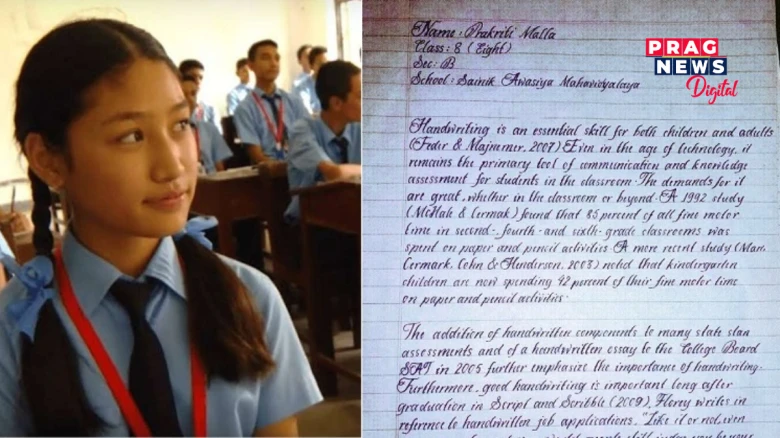 PRAG
NEWS
Digital
Name : Prakriti Malla
Class : 8 (Eight)
Sec : B
School : Sainik Awasiya Mahavidyalaya
Handwriting is an essential skill for both children and adults
(Feder & Majnemer, 2007) Even in the age of technology, it
remains the primary tool of communication and knowledge
assessment for students in the classroom. The demands for it
are great, whether in the classroom or beyond. A 1992 study
(McHale & Cermak) found that 85 percent of all fine motor
time in second-, fourth- and sixth-grade classrooms was
spent on paper and pencil activities. A more recent study (Marr,
Cermark, Cohn & Henderson, 2003) noted that kindergarten
children are now spending 42 percent of their fine motor time
on paper and pencil activities.
The addition of handwritten components to many state stan
assessments and of a handwritten essay to the College Board
SAT in 2005 further emphasize the importance of handwriting.
Furthermore, good handwriting is important long after
graduation in Script and Scribble (2009), Florey writes in
reference to handwritten job applications, "Like it or not, even